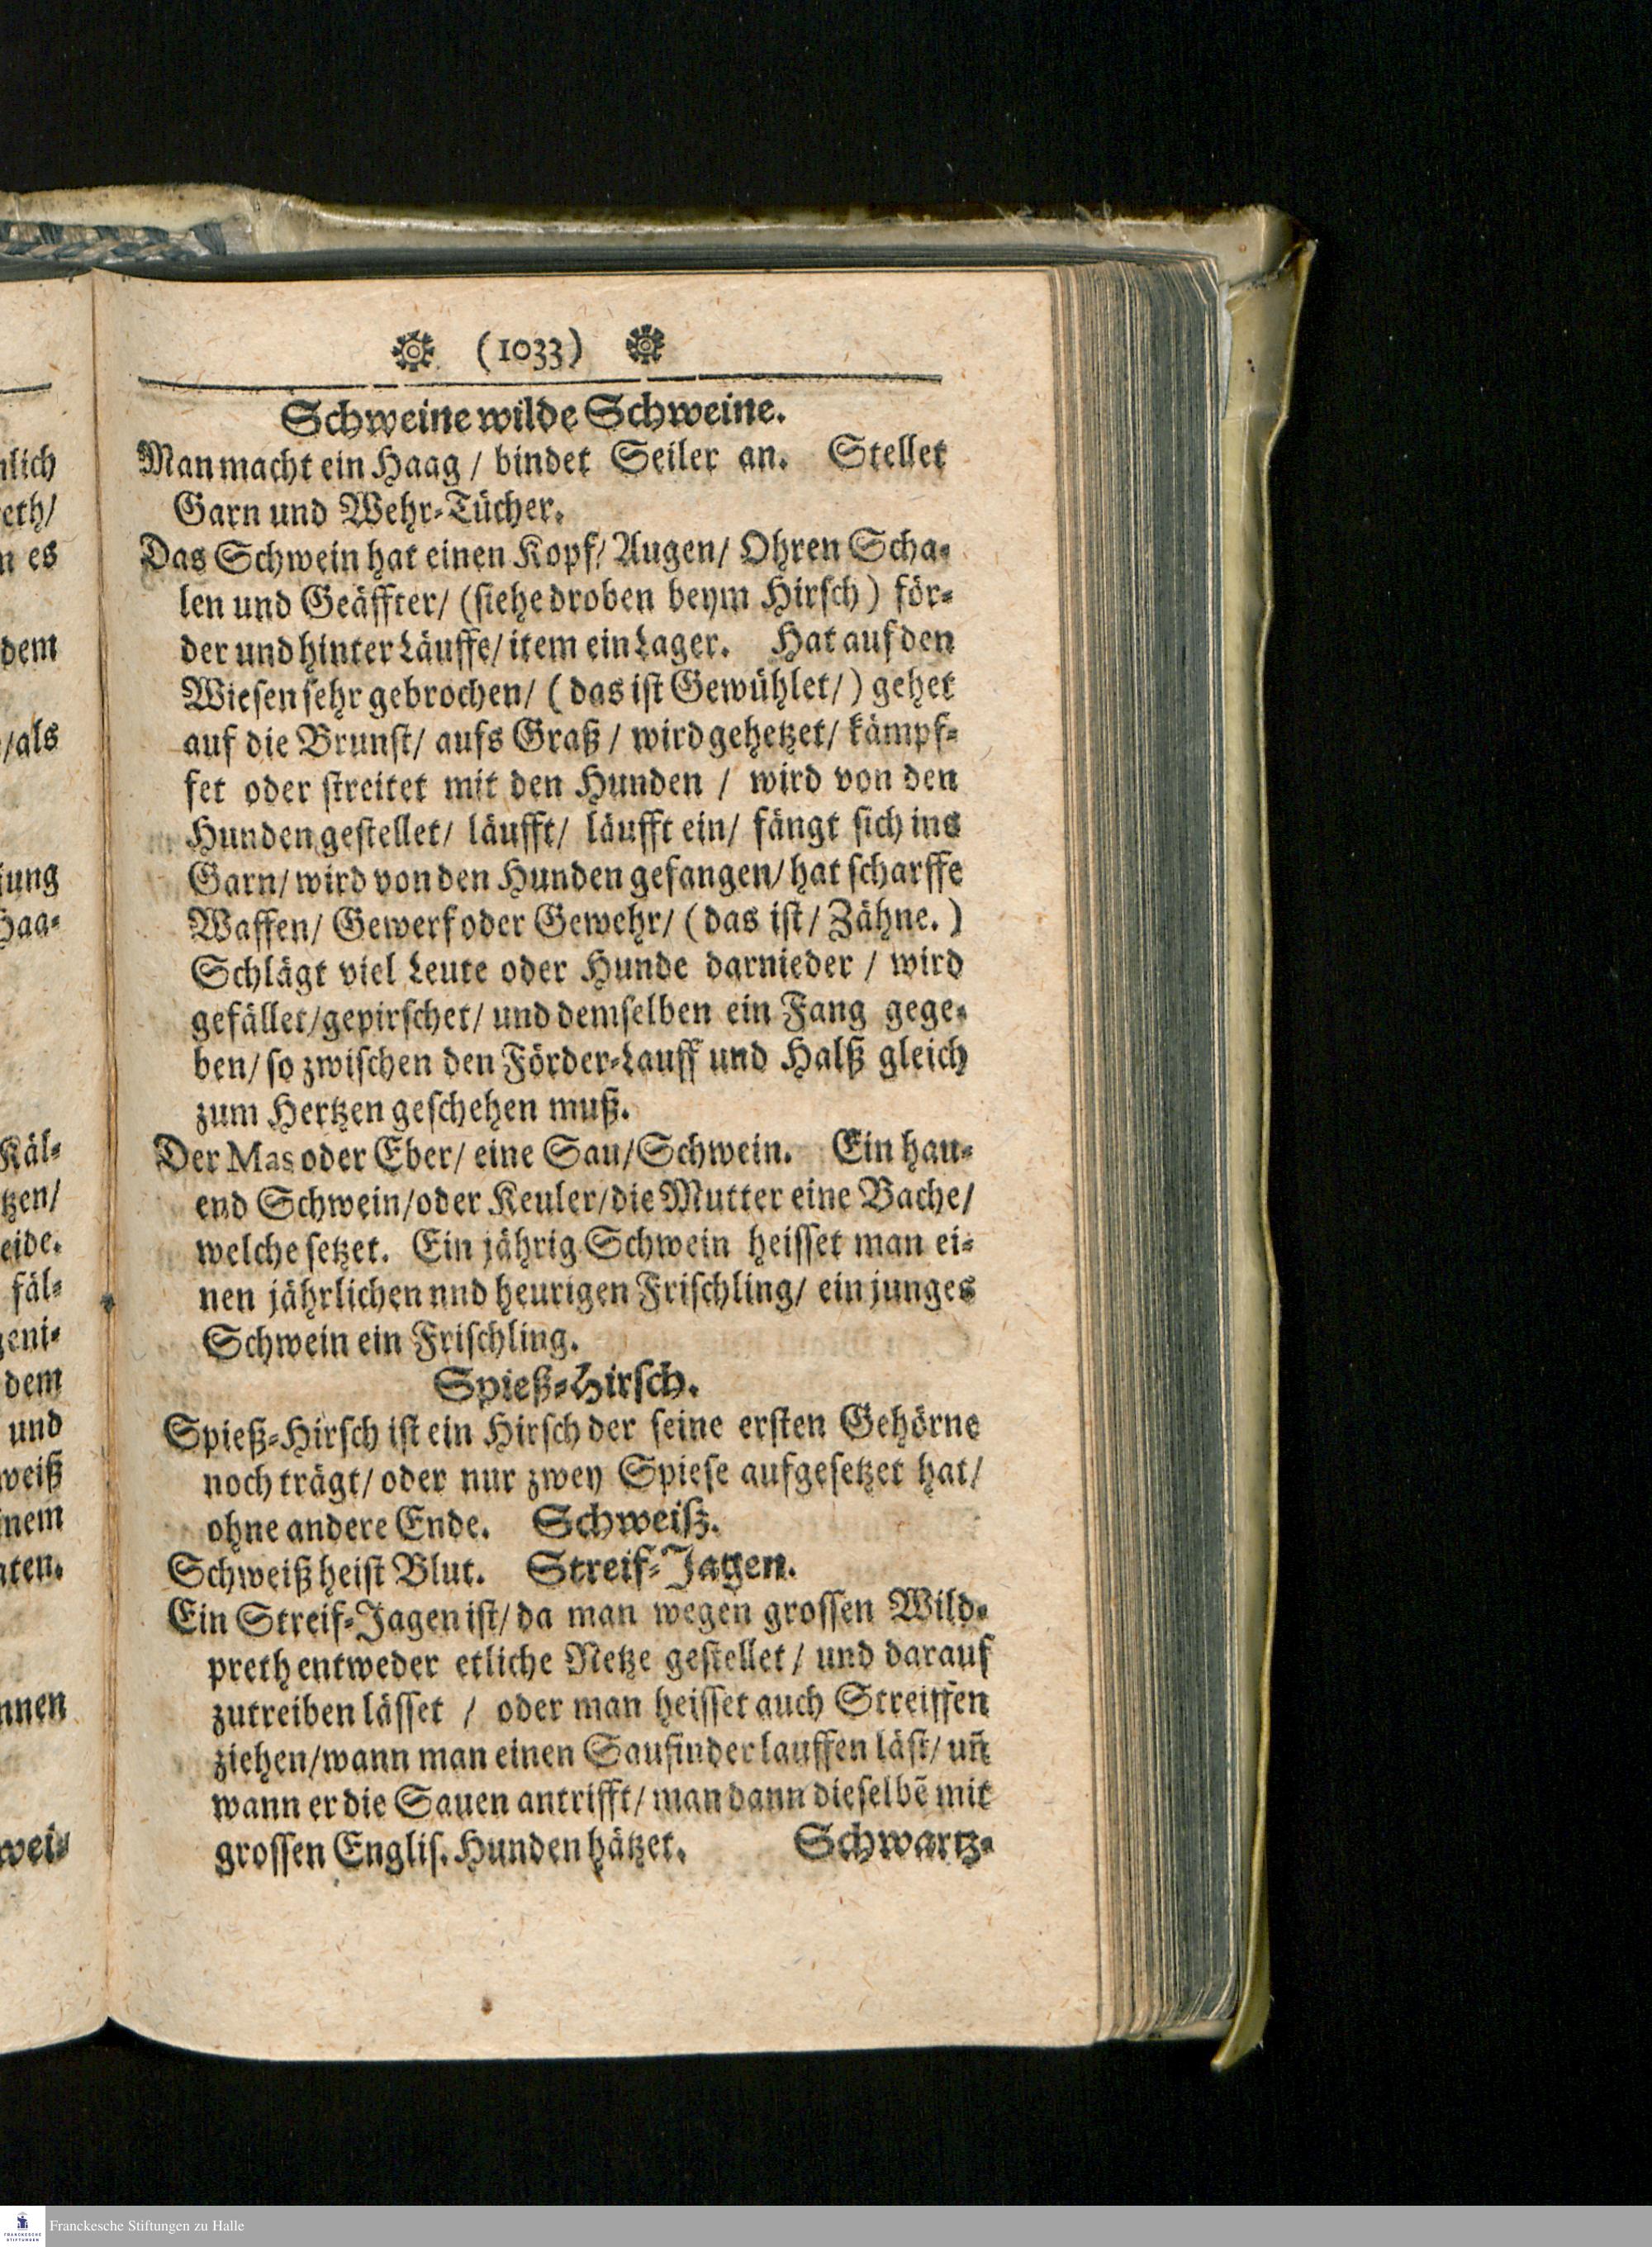 (1033)
Schweine wilde Schweine.
Man macht ein Haag / bindet Seiler an. Stellet
Garn und Wehr-Tücher.
Das Schwein hat einen Kopf/ Augen/ Ohren Scha-
len und Geäffter/ (siehe droben beym Hirsch) för-
der und hinter Läuffe/ item ein Lager. Hat auf den
Wiesen sehr gebrochen/ (das ist Gewühlet/) gehet
auf die Brunst/ aufs Graß / wird gehetzet/ kämpf-
fet oder streitet mit den Hunden / wird von den
Hunden gestellet/ läufft/ läufft ein/ fängt sich ins
Garn/ wird von den Hunden gefangen/ hat scharffe
Waffen/ Gewerf oder Gewehr/ (das ist/ Zähne.)
Schlägt viel Leute oder Hunde darnieder / wird
gefället/gepirschet/ und demselben ein Fang gege-
ben/ so zwischen den Förder-Lauff und Halß gleich
zum Hertzen geschehen muß.
Der Mas oder Eber/ eine Sau/Schwein. Ein hau-
end Schwein/oder Keuler/die Mutter eine Bache/
welche setzet. Ein jährig Schwein heisset man ei-
nen jährlichen nnd heurigen Frischling/ ein junges
Schwein ein Frischling.
Spieß-Hirsch.
Spieß-Hirsch ist ein Hirsch der seine ersten Gehörne
noch trägt/ oder nur zwey Spiese aufgesetzet hat/
ohne andere Ende. Schweiß.
Schweiß heist Blut. Streif-Jagen.
Ein Streif-Jagen ist/ da man wegen grossen Wild-
preth entweder etliche Netze gestellet / und darauf
zutreiben lässet / oder man heisset auch Streiffen
ziehen/wann man einen Saufinder lauffen läst/ uñ
wann er die Sauen antrifft/ man dann dieselbẽ mit
grossen Englis. Hunden hätzet. Schwartz-
nlich
eth/
n es
dem
/als
jung
Haa-
Käl-
tzen/
eide.
fäl-
geni-
dem
und
weiß
inem
aten.
nnen
wei-
Franckesche Stiftungen zu Halle
FRANCKESCHE
STIFTUNGEN